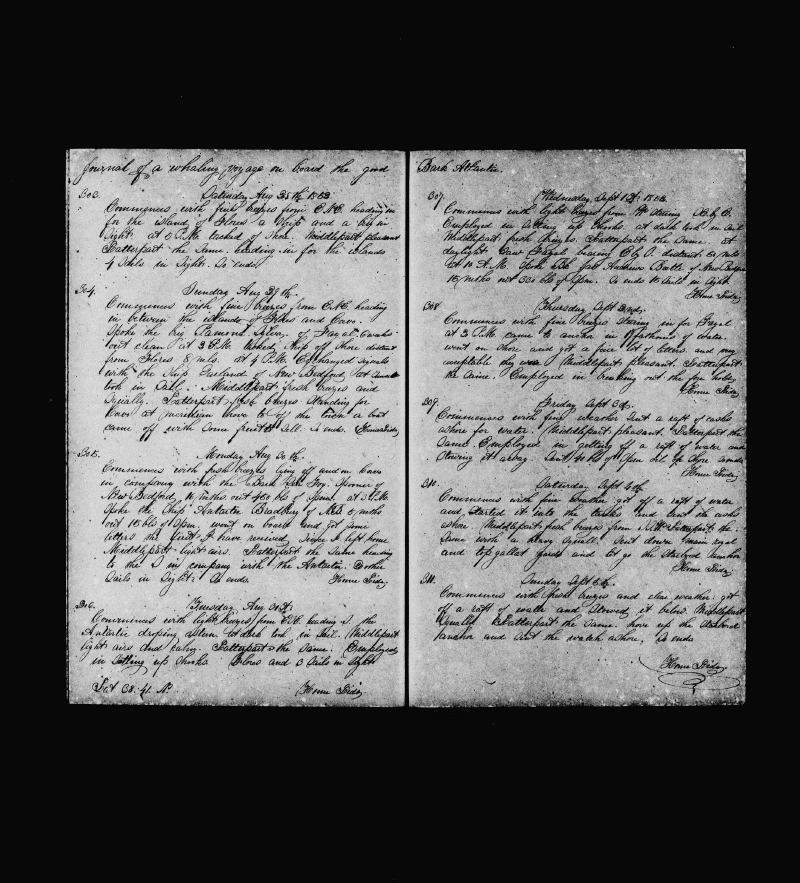 Journal of a whaling voyage on board the good
303. Saturday Aug 28th 1853
Commences with fine breezes from E.N.E. heading in
for the island of Flores a Ship and a brig in
Sight. at 6 P.M. tacked of Shore. Middlepart pleasant
Latterpart the Same. heading in for the islands
4 Sails in Sight. So ends
304. Sunday Aug 29th
Commences with fine breezes from E.N.E. heading
in between the islands of Flores and Corvo.
Spoke the brig Pamona Sylva of Fayal
out clean at 3 P.M. tacked Ship off Shore distant
from Flores 8 mls. at 4 P.M. Exchanged signals
with the Ship Garland of New Bedford, at
took in Sail. Middlepart fresh breezes and
Squally. Latterpart fresh breezes Standing for
Corvo at meridian hove to off the town a boat
came off with Some fruit to Sell. So ends.
305. Monday Aug 30th
Commences with fresh breezes lying off and on Corvo
in company with the Bark Spooner of
New Bedford, mths out 450 bls of Spm, at P.M.
Spoke the Ship Antartic Bradbury of N.B. 5 mths
out 15 bls of Spm, went on board and got some
letters the first I have received Since I left home
Middlepart light airs. Latterpart the Same heading
to the in company with the Antartic.
Sails in Sight. So ends
306. Tuesday Aug 31st
Commences with light breezes from heading the
Antartic droping astern at dark took in Sail. Middlepart
light airs and rainy Latterpart the Same. Employed
in Setting up Shooks Flores and 3 Sails in Sight
Lat 38.41 N.
Bark Atlantic.
307. Wednesday Sept 1st 1853.
Commences with light breezes from Steering
Employed in Setting up Shooks at dark took in Sail
Middlepart fresh breezes Latterpart the Same. at
daylight Saw Fayal bearing distant mls
at 10 A.M. Spoke the Ship Andrews of New Bedford
15 mths out 330 bls of Spm. So ends Sail in Sight
308 Thursday Sept 2nd,
Commences with fine breezes Steering in for Fayal
at 3 P.M. came to anchor in fathoms of water.
went on Shore and got a fine lot of letters and very
acceptable they were Middlepart pleasant. Latterpart
the Same. Employed in breaking out the fore hole
309. Friday Sept 3rd,
Commences with fine weather Sent a raft of casks
ashore for water. Middlepart pleasant, Latterpart the
Same Employed in getting of a raft of water and
Stowing it away. Sent bls of Spm oil on Shore
310. Saturday Sept 4th,
Commences with fine weather, got of a raft of water
and Started it into the casks and Sent the casks
ashore. Middlepart fresh breezes from Latterpart the
Same with a heavy Squall. Sent down main royal
and top gallat yards and let go the Starbord anchor
311. Sunday Sept 5th,
Commences with fresh breezes and clear weather. got
of a raft of water and Stowed it below. Middlepart
Squally Latterpart the Same. hove up the Starbord
anchor and Sent the watch ashore, So ends